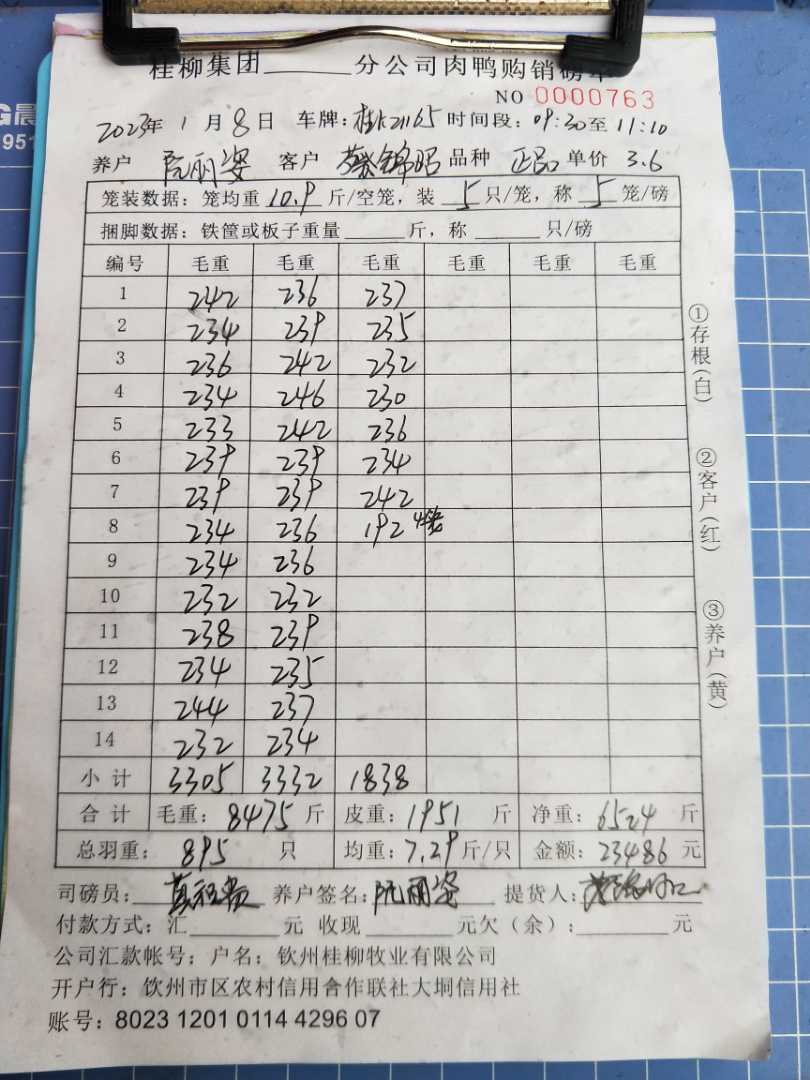 桂柳集团______分公司肉鸭购销磅单
NO 0000763
2023年 1 月 8 日 车牌: 时间段: 09:30至 11:10
养户 阮丽姿 客户 蔡锦昭 品种 正品 单价 3.6
笼装数据: 笼均重 10.9 斤/空笼, 装 5 只/笼, 称 5 笼/磅
捆脚数据: 铁筐或板子重量______斤, 称______只/磅
编号 毛重 毛重 毛重 毛重 毛重 毛重
1 242 236 237
2 234 239 235
3 236 242 232
4 234 246 230
5 233 242 236
6 239 239 234
7 239 239 242
8 234 236 192 4笼
9 234 236
10 232 232
11 238 239
12 234 235
13 244 237
14 232 234
小计 3305 3332 1838
合计 毛重: 8475 斤 皮重: 1951 斤 净重: 6524 斤
总羽重: 895 只 均重: 7.29 斤/只 金额: 23486 元
司磅员: 养户签名: 阮丽姿 提货人:
付款方式: 汇______元 收现______元欠(余):______元
公司汇款帐号: 户名: 钦州桂柳牧业有限公司
开户行: 钦州市区农村信用合作联社大垌信用社
账号: 8023 1201 0114 4296 07
①存根(白)
②客户(红)
③养户(黄)
G晨
951